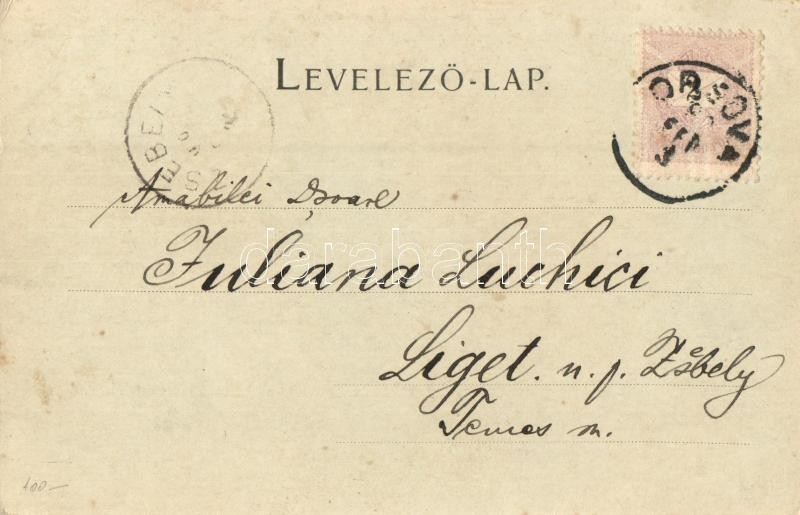 LEVELEZÖ-LAP.
ORSOVA
SEBEL
Amabilei
Juliana Luchici
Liget. n. p. Zsebely
Temes m.
100-
darabanth